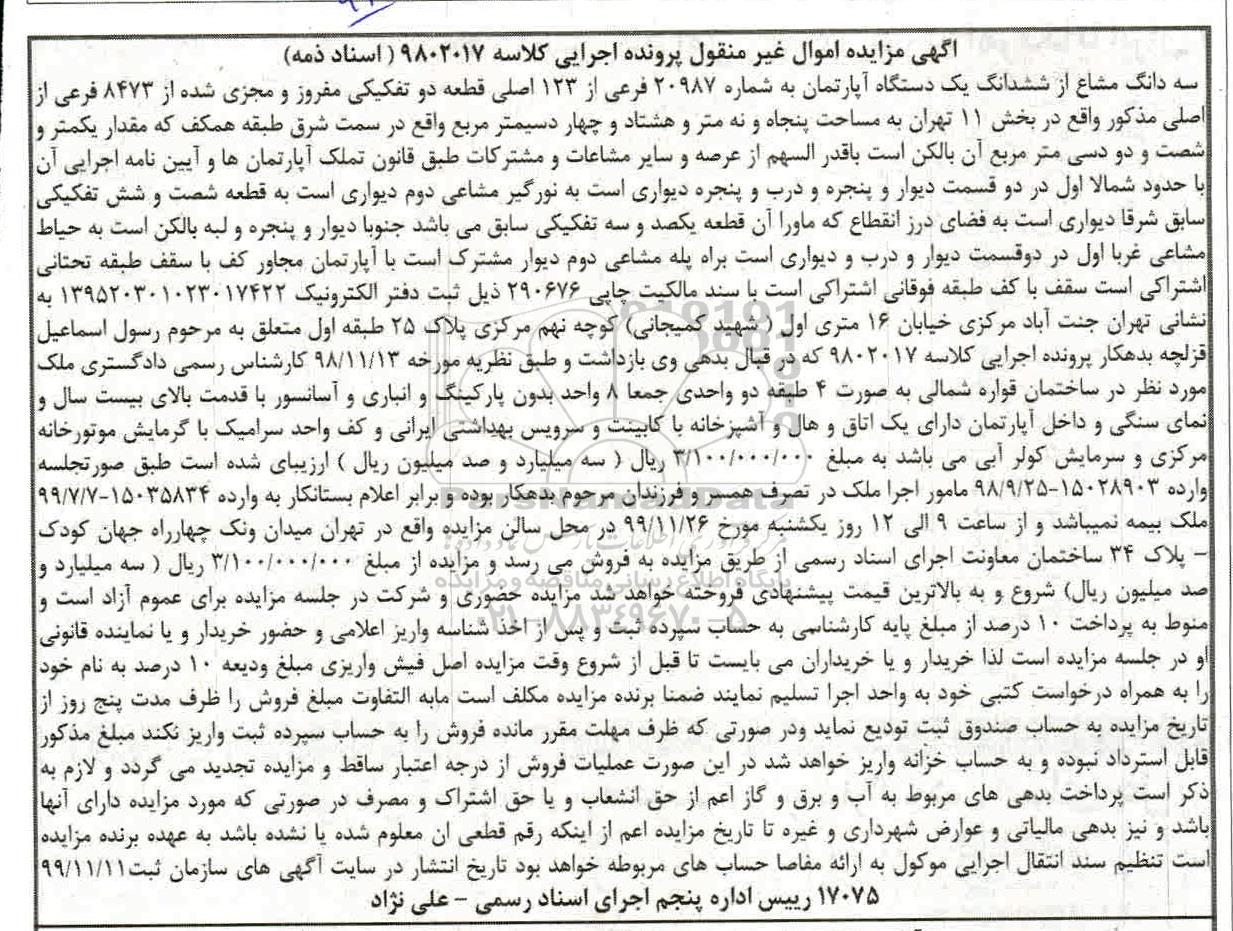 اگهی مزایده اموال غیر منقول پرونده اجرایی کلاسه ۹۸۰۲۰۱۷ ( اسناد ذمه)
سه دانگ مشاع از ششدانگ یک دستگاه آپارتمان به شماره ۲۰۹۸۷ فرعی از ۱۲۳ اصلی قطعه دو تفکیکی مفروز و مجزی شده از ۸۴۷۳ فرعی از
اصلی مذکور واقع در بخش ۱۱ تهران به مساحت پنجاه و نه متر و هشتاد و چهار دسیمتر مربع واقع در سمت شرق طبقه همکف که مقدار یکمتر و
شصت و دو دسی متر مربع آن بالکن است باقدر السهم از عرصه و سایر مشاعات و مشترکات طبق قانون تملک آپارتمان ها و آیین نامه اجرایی آن
با حدود شمالا اول در دو قسمت دیوار و پنجره و درب و پنجره دیواری است به نورگیر مشاعی دوم دیواری است به قطعه شصت و شش تفکیکی
سابق شرقا دیواری است به فضای درز انقطاع که ماورا آن قطعه یکصد و سه تفکیکی سابق می باشد جنوبا دیوار و پنجره و لبه بالکن است به حیاط
مشاعی غربا اول در دوقسمت دیوار و درب و دیواری است براه پله مشاعی دوم دیوار مشترک است با آپارتمان مجاور کف با سقف طبقه تحتانی
اشتراکی است سقف با کف طبقه فوقانی اشتراکی است با سند مالکیت چاپی ۲۹۰۶۷۶ ذیل ثبت دفتر الکترونیک ۱۳۹۵۲۰۳۰۱۰۲۳۰۱۷۴۲۲ به
نشانی تهران جنت آباد مرکزی خیابان ۱۶ متری اول ( شهید کمیجانی) کوچه نهم مرکزی پلاک ۲۵ طبقه اول متعلق به مرحوم رسول اسماعیل
قزلچه بدهکار پرونده اجرایی کلاسه ۹۸۰۲۰۱۷ که در قبال بدهی وی بازداشت و طبق نظریه مورخه ۹۸/۱۱/۱۳ کارشناس رسمی دادگستری ملک
مورد نظر در ساختمان قواره شمالی به صورت ۴ طبقه دو واحدی جمعا ۸ واحد بدون پارکینگ و انباری و آسانسور با قدمت بالای بیست سال و
نمای سنگی و داخل آپارتمان دارای یک اتاق و هال و آشپزخانه با کابینت و سرویس بهداشتی ایرانی و کف واحد سرامیک با گرمایش موتورخانه
مرکزی و سرمایش کولر آبی می باشد به مبلغ ۳/۱۰۰/۰۰۰/۰۰۰ ریال ( سه میلیارد و صد میلیون ریال ) ارزیبای شده است طبق صورتجلسه
وارده ۱۵۰۲۸۹۰۳-۹۸/۹/۲۵ مامور اجرا ملک در تصرف همسر و فرزندان مرحوم بدهکار بوده و برابر اعلام بستانکار به وارده ۱۵۰۳۵۸۳۴-۹۹/۷/۷
ملک بیمه نمیباشد و از ساعت ۹ الی ۱۲ روز یکشنبه مورخ ۹۹/۱۱/۲۶ در محل سالن مزایده واقع در تهران میدان ونک چهارراه جهان کودک
– پلاک ۳۴ ساختمان معاونت اجرای اسناد رسمی از طریق مزایده به فروش می رسد و مزایده از مبلغ ۳/۱۰۰/۰۰۰/۰۰۰ ریال ( سه میلیارد و
صد میلیون ریال) شروع و به بالاترین قیمت پیشنهادی فروخته خواهد شد مزایده حضوری و شرکت در جلسه مزایده برای عموم آزاد است و
منوط به پرداخت ۱۰ درصد از مبلغ پایه کارشناسی به حساب سپرده ثبت و پس از اخذ شناسه واریز اعلامی و حضور خریدار و یا نماینده قانونی
او در جلسه مزایده است لذا خریدار و یا خریداران می بایست تا قبل از شروع وقت مزایده اصل فیش واریزی مبلغ ودیعه ۱۰ درصد به نام خود
را به همراه درخواست کتبی خود به واحد اجرا تسلیم نمایند ضمنا برنده مزایده مکلف است مابه التفاوت مبلغ فروش را ظرف مدت پنج روز از
تاریخ مزایده به حساب صندوق ثبت تودیع نماید ودر صورتی که ظرف مهلت مقرر مانده فروش را به حساب سپرده ثبت واریز نکند مبلغ مذکور
قابل استرداد نبوده و به حساب خزانه واریز خواهد شد در این صورت عملیات فروش از درجه اعتبار ساقط و مزایده تجدید می گردد و لازم به
ذکر است پرداخت بدهی های مربوط به آب و برق و گاز اعم از حق انشعاب و یا حق اشتراک و مصرف در صورتی که مورد مزایده دارای آنها
باشد و نیز بدهی مالیاتی و عوارض شهرداری و غیره تا تاریخ مزایده اعم از اینکه رقم قطعی ان معلوم شده یا نشده باشد به عهده برنده مزایده
است تنظیم سند انتقال اجرایی موکول به ارائه مفاصا حساب های مربوطه خواهد بود تاریخ انتشار در سایت آگهی های سازمان ثبت۹۹/۱۱/۱۱
۱۷۰۷۵ رییس اداره پنجم اجرای اسناد رسمی – علی نژاد
ParsNamadData
پایگاه اطلاع رسانی مناقصه و مزایده
۰۲۱-۸۸۳۴۹۶۷۰-۵